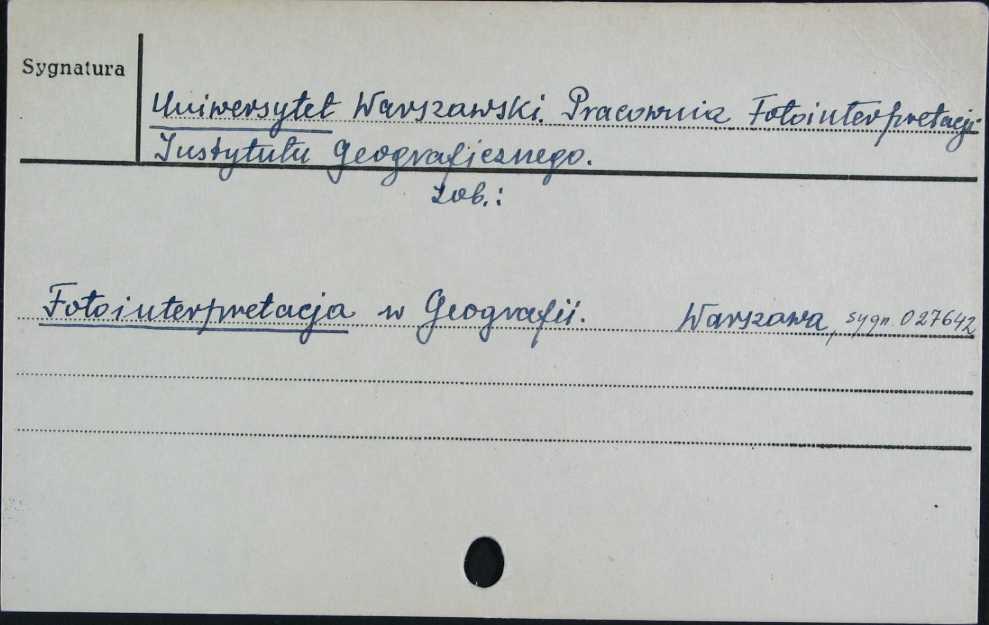 Sygnatura
Uniwersytet Warszawski. Pracownia Fotointerpretacji
Instytutu Geograficznego.
zob.:
Fotointerpretacja w Geografii. Warszawa, sygn. 027642